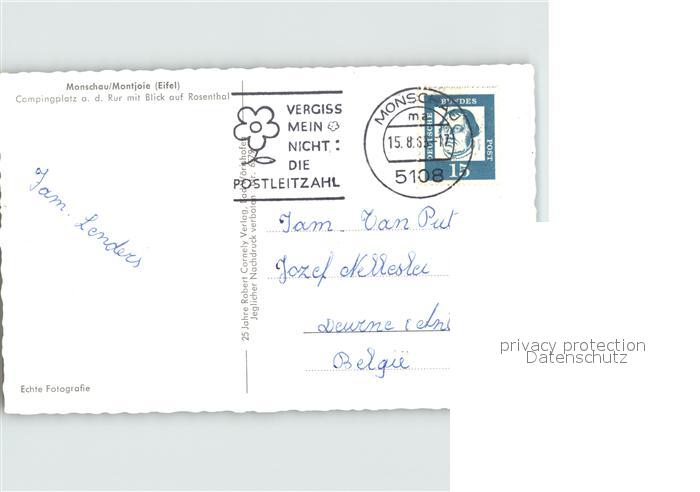 Monschau/Montjoie (Eifel)
Campingplatz a. d. Rur mit Blick auf Rosenthal
VERGISS
MEIN
NICHT:
DIE
POSTLEITZAHL
MONSCHAU
ma
15. 8. 63.-17
5108
DEUTSCHE
BUNDES
POST
15
Fam. Lenders
Fam. Van Put
Jozef
Deurne (An
België
25 Jahre Robert Cornely Verlag,
Jeglicher Nachdruck verboten
Echte Fotografie
privacy protection
Datenschutz